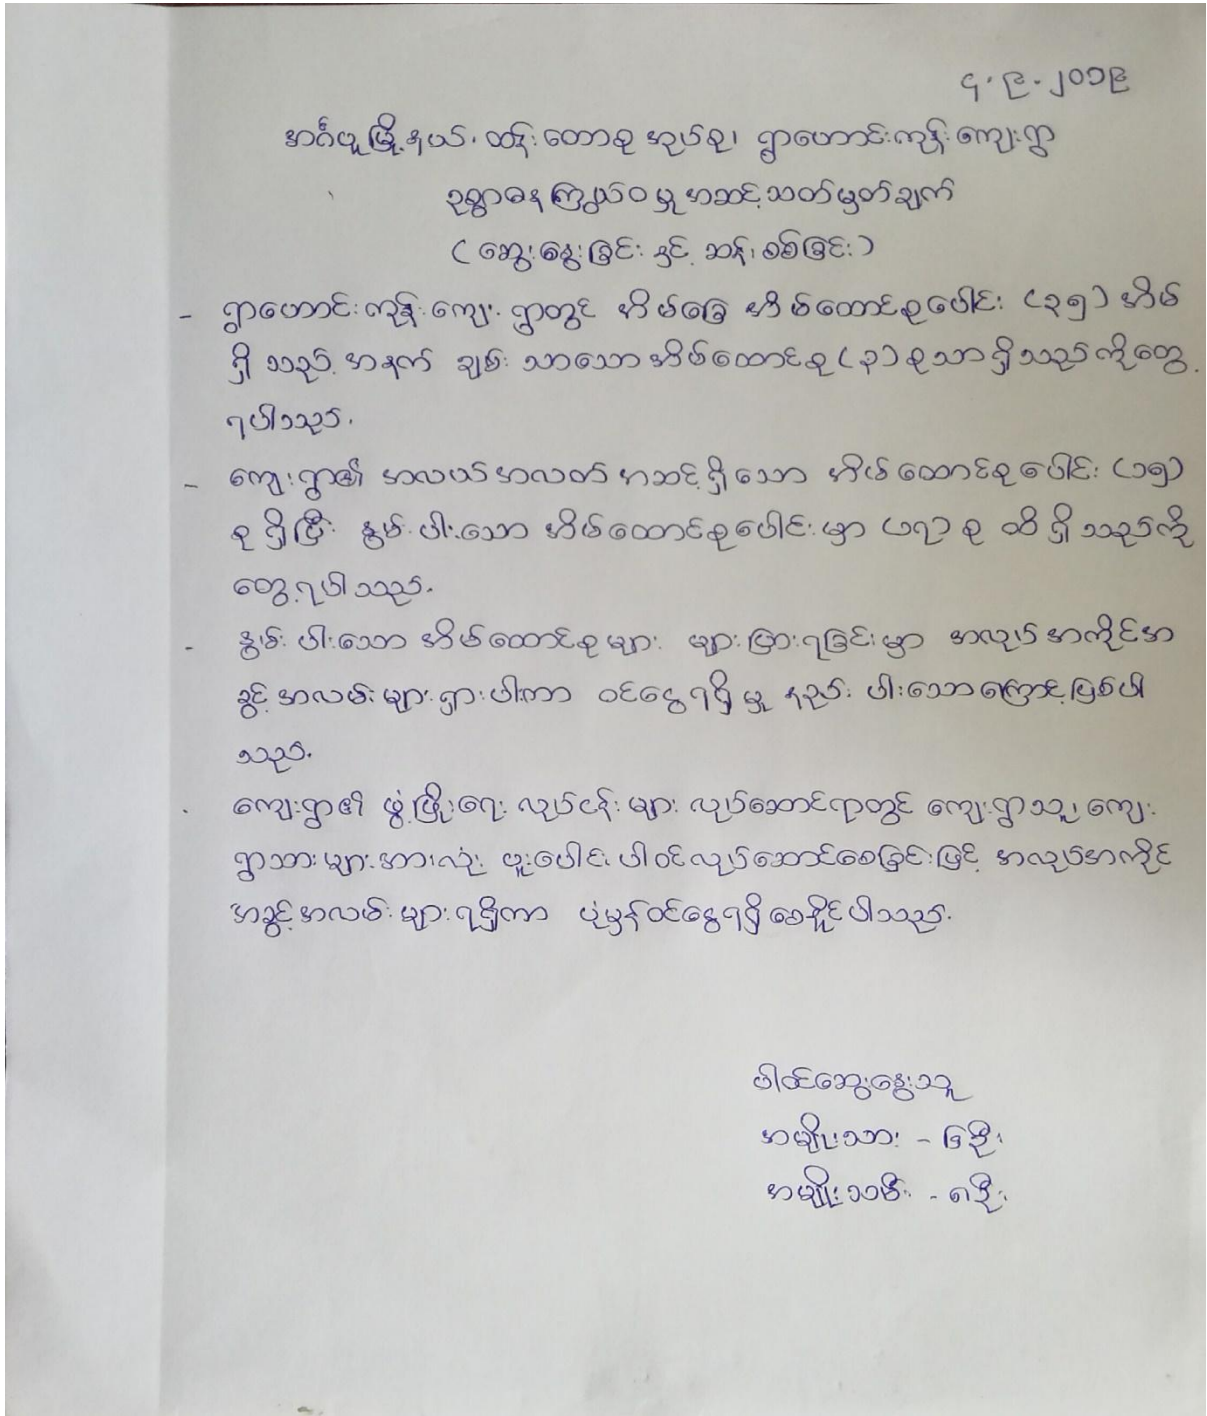 ၄.၉.၂၀၁၉
အင်္ဂပူမြို့နယ်၊ ထန်းတောစု အုပ်စု၊ ရွာဟောင်းကုန်းကျေးရွာ
ဥစ္စာဓနကြွယ်ဝမှုအဆင့်သတ်မှတ်ချက်
(ဆွေးနွေးခြင်း နှင့် ဆန်းစစ်ခြင်း)
- ရွာဟောင်းကုန်းကျေးရွာတွင် အိမ်ခြေ အိမ်ထောင်စုပေါင်း (၃၅) အိမ်
ရှိသည့်အနက် ချမ်းသာသောအိမ်ထောင်စု (၃) စုသာရှိသည်ကိုတွေ့
ရပါသည်။
- ကျေးရွာ၏ အလယ်အလတ်အဆင့်ရှိသော အိမ်ထောင်စုပေါင်း (၁၅)
စုရှိပြီး နွမ်းပါးသော အိမ်ထောင်စုပေါင်းမှာ (၁၇) စု ထိရှိသည်ကို
တွေ့ရပါသည်။
- နွမ်းပါးသောအိမ်ထောင်စုများ များပြားရခြင်းမှာ အလုပ်အကိုင်အ
ခွင့်အလမ်းများရှားပါးကာ ဝင်ငွေရရှိမှု နည်းပါးသောကြောင့်ဖြစ်ပါ
သည်။
- ကျေးရွာ၏ ဖွံ့ဖြိုးရေးလုပ်ငန်းများ လုပ်ဆောင်ရာတွင် ကျေးရွာသူ၊ ကျေး
ရွာသားများအားလုံး ပူးပေါင်းပါဝင်လုပ်ဆောင်စေခြင်းဖြင့် အလုပ်အကိုင်
အခွင့်အလမ်းများရရှိကာ ပုံမှန်ဝင်ငွေရရှိစေနိုင်ပါသည်။
ပါဝင်ဆွေးနွေးသူ
အမျိုးသား - ၆ဦး
အမျိုးသမီး - ၈ဦး